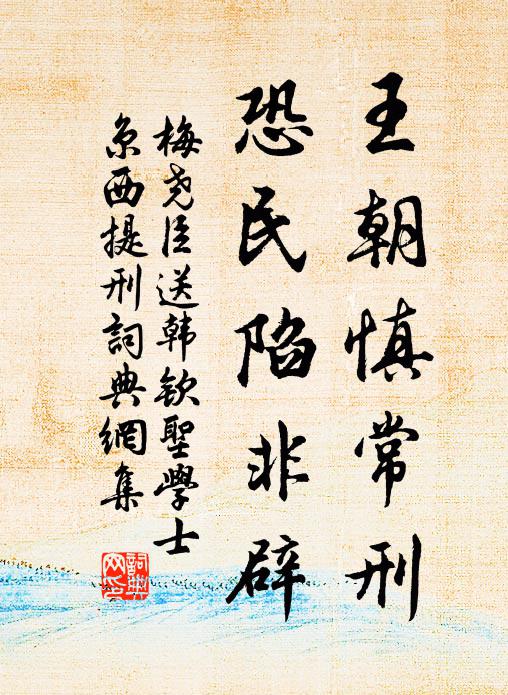 王朝慎常刑
恐民陷非辟
梅尧臣送韩钦聖學士
京西提刑詞典網集